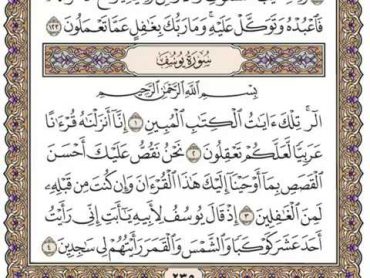 فَٱعۡبُدۡهُ وَتَوَكَّلۡ عَلَيۡهِۚ وَمَا رَبُّكَ بِغَٰفِلٍ عَمَّا تَعۡمَلُونَ ١٢٣
سُورَةُ يُوسُفَ
بِسۡمِ ٱللَّهِ ٱلرَّحۡمَٰنِ ٱلرَّحِيمِ
الٓرۚ تِلۡكَ ءَايَٰتُ ٱلۡكِتَٰبِ ٱلۡمُبِينِ ١ إِنَّآ أَنزَلۡنَٰهُ قُرۡءَٰنًا
عَرَبِيّٗا لَّعَلَّكُمۡ تَعۡقِلُونَ ٢ نَحۡنُ نَقُصُّ عَلَيۡكَ أَحۡسَنَ
ٱلۡقَصَصِ بِمَآ أَوۡحَيۡنَآ إِلَيۡكَ هَٰذَا ٱلۡقُرۡءَانَ وَإِن كُنتَ مِن قَبۡلِهِۦ
لَمِنَ ٱلۡغَٰفِلِينَ ٣ إِذۡ قَالَ يُوسُفُ لِأَبِيهِ يَٰٓأَبَتِ إِنِّي رَأَيۡتُ
أَحَدَ عَشَرَ كَوۡكَبٗا وَٱلشَّمۡسَ وَٱلۡقَمَرَ رَأَيۡتُهُمۡ لِي سَٰجِدِينَ ٤
٢٣٥